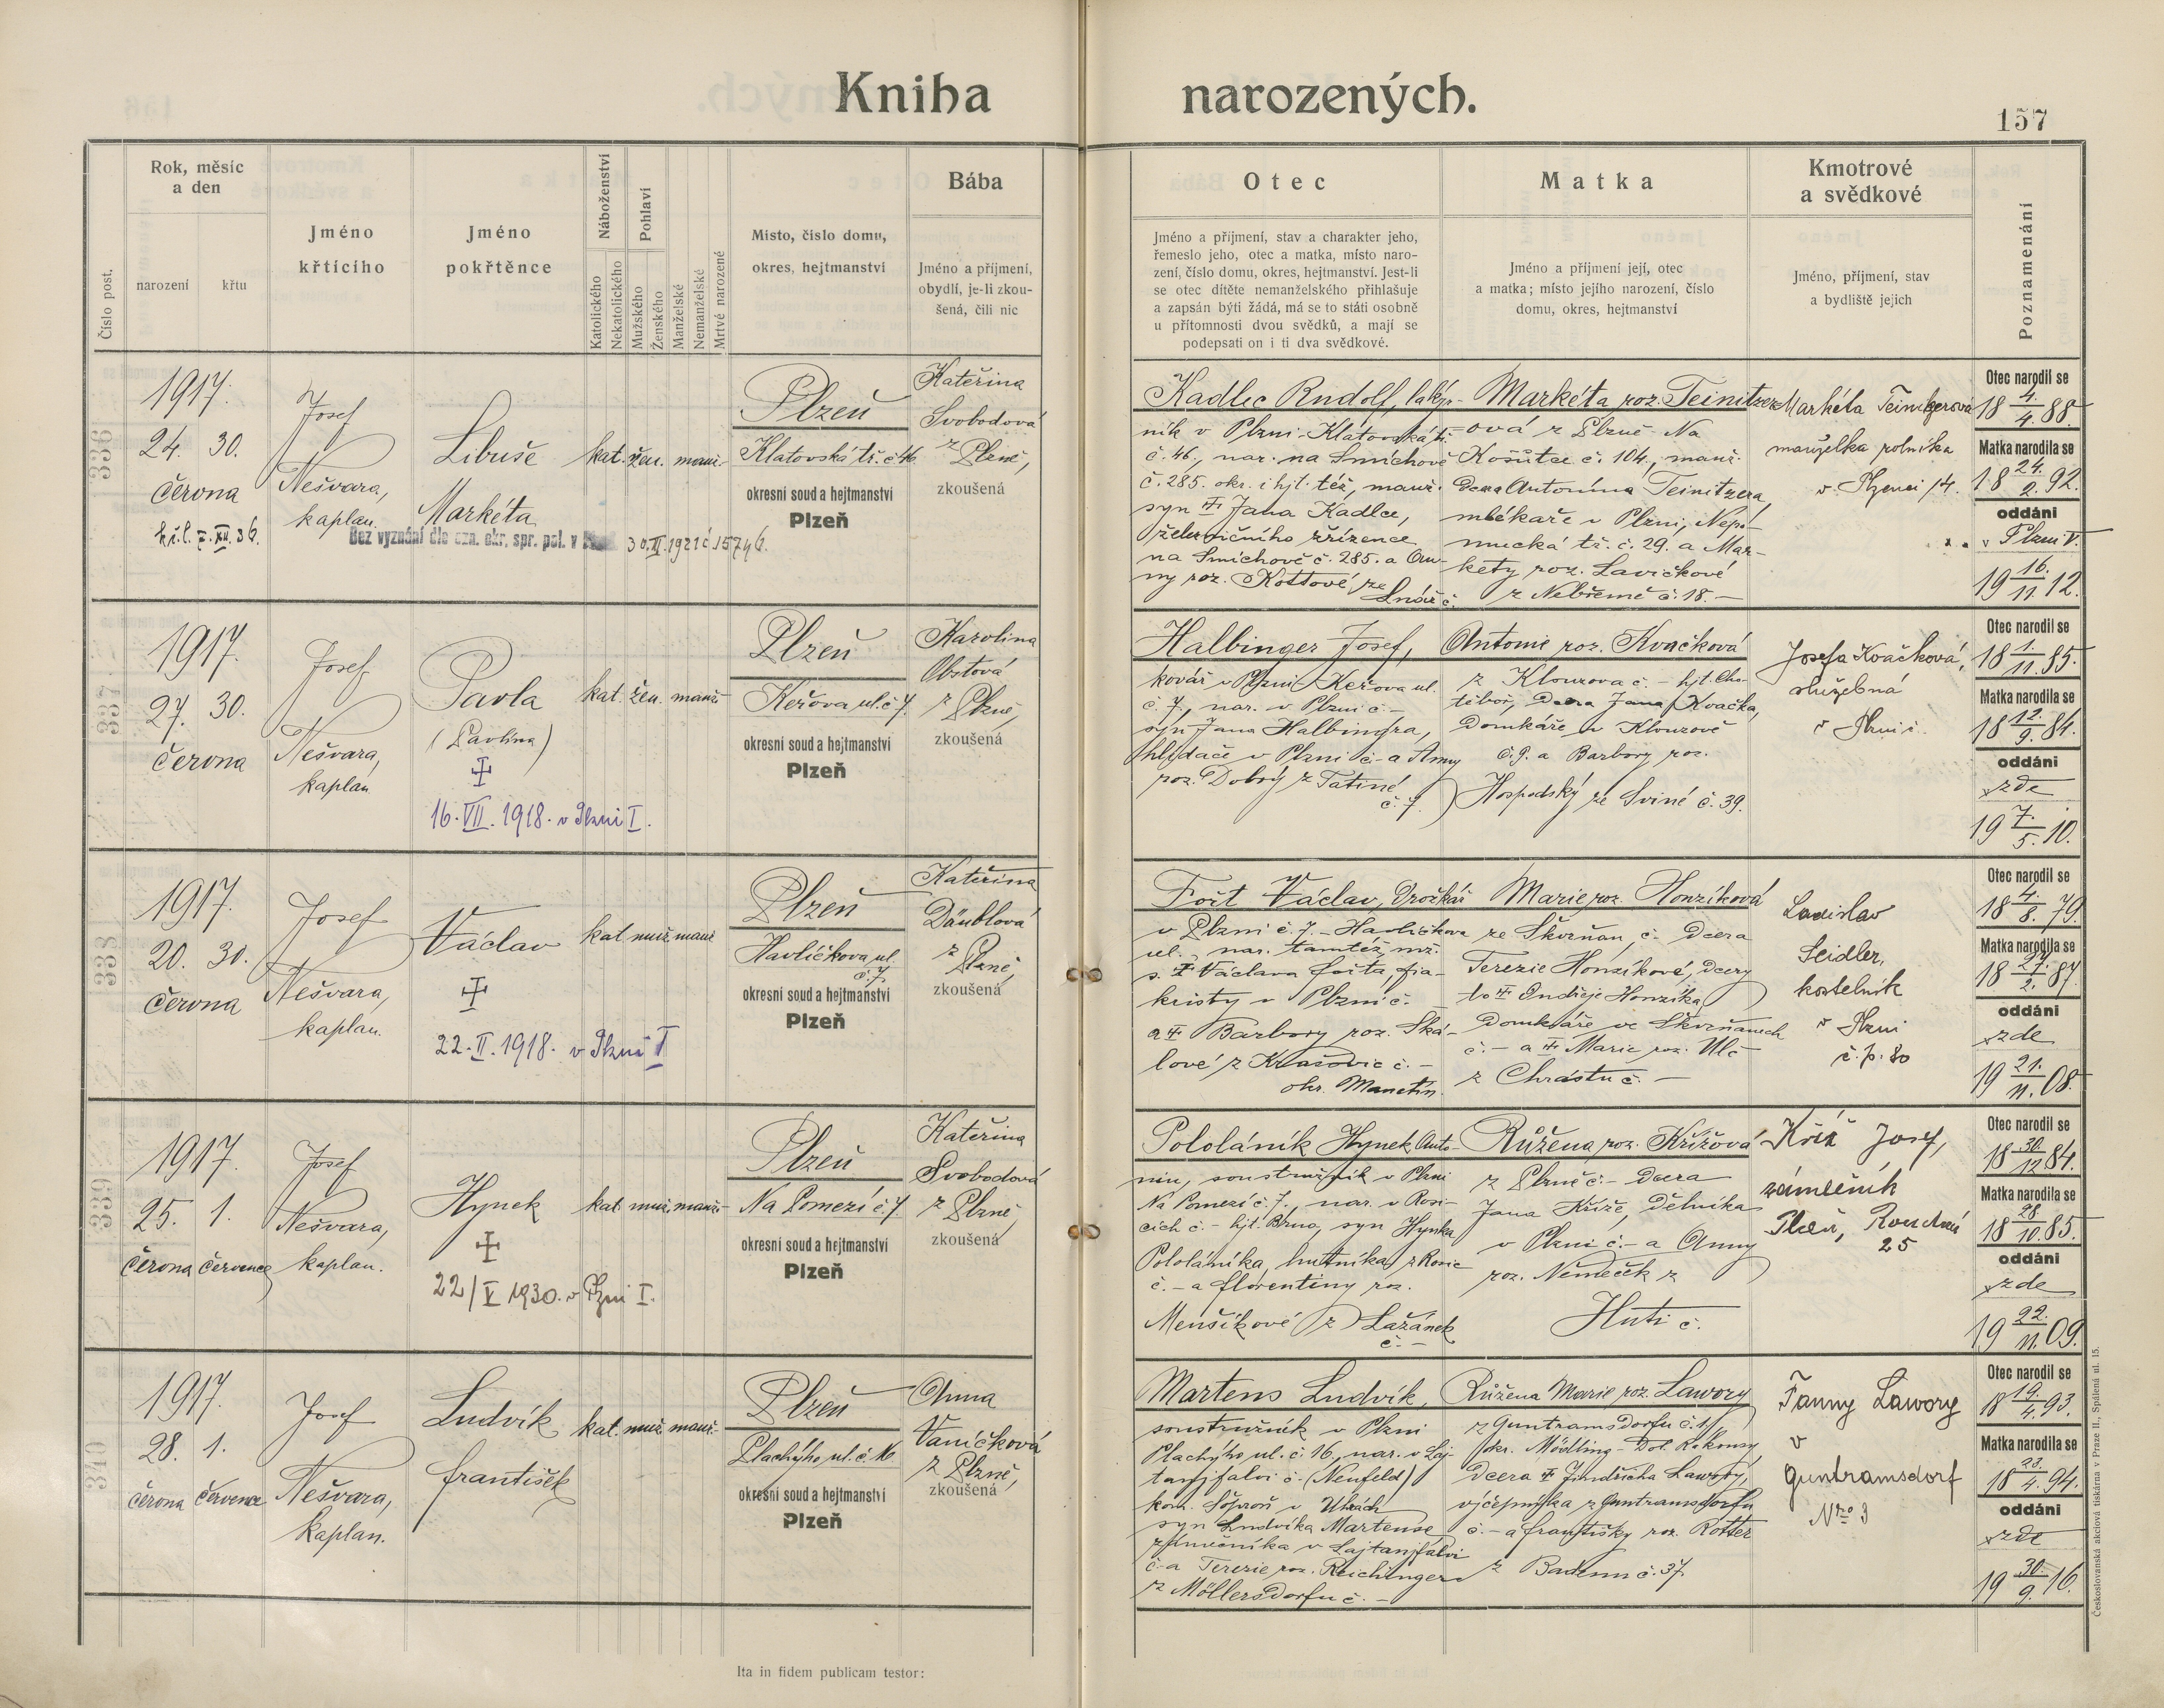 Kniha narozených.
157
Číslo post.
Rok, měsíc
a den
narození
křtu
Jméno
křtícího
Jméno
pokřtěnce
Náboženství
Katolického
Nekatolického
Pohlaví
Mužského
Ženského
Manželské
Nemanželské
Mrtvé narozené
Místo, číslo domu,
okres, hejtmanství
Bába
Jméno a příjmení,
obydlí, je-li zkou-
šená, čili nic
Otec
Jméno a příjmení, stav a charakter jeho,
řemeslo jeho, otec a matka, místo naro-
zení, číslo domu, okres, hejtmanství. Jest-li
se otec dítěte nemanželského přihlašuje
a zapsán býti žádá, má se to státi osobně
u přítomnosti dvou svědků, a mají se
podepsati on i ti dva svědkové.
Matka
Jméno a příjmení její, otec
a matka; místo jejího narození, číslo
domu, okres, hejtmanství
Kmotrové
a svědkové
Jméno, příjmení, stav
a bydliště jejich
Poznamenání
336
1917.
24. 30.
června
Josef
Nešvara,
kaplan.
Libuše
Markéta
kat. žen. manž.
Bez vyznání dle ozn. okr. spr. pol. v
30.III.1921 č 15746.
Plzeň
Klatovská tř. č 46
okresní soud a hejtmanství
Plzeň
Kateřina
Svobodová
z Plzně,
zkoušená
Kadlec Rudolf,
ník v Plzni-Klatovská tř.
č. 46., nar. na Smíchově
č. 285. okr. i hjt. též, manž.
syn Jana Kadlce,
železničního zřízence
na Smíchově č. 285. a An-
ny roz. Kottové ze
Lnář č.
Markéta roz. Teinitzer-
ová z Plzně Na
Košutce č. 104., manž.
dcera Antonína Teinitzera,
mlékaře v Plzni, Nepo-
mucká tř. č. 29. a Mar-
kéty roz. Lavičkové
z Nebřemě č. 18. —
Markéta Teinitzerová
manželka rolníka
Otec narodil se
18 4./4. 88.
Matka narodila se
18 24./2. 92.
oddáni
v Plzni V.
19 16./11. 12.
337
1917.
27. 30.
června
Josef
Nešvara,
kaplan
Pavla
(Pavlína)
16. VII. 1918. v Plzni I.
kat. žen. manž.
Plzeň
Keřova ul. č 7.
okresní soud a hejtmanství
Plzeň
Karolina
Obstová
z Plzně,
zkoušená
Halbinger Josef,
kovář v Plzni Keřova ul.
č. 7., nar. v Plzni č —
syn Jana Halbingra,
hlídače v Plzni č — a Anny
roz. Dobrý z Tatiné
č. 7.
Antonie roz. Kvačková
z Klouzova č. — hjt. Cho-
těboř, dcera Jana Kvačka,
domkáře v Klouzově
č. 9. a Barbory roz.
Hospodský ze Sviné č. 39.
Josefa Kvačková,
služebná
Otec narodil se
18 1./11. 85.
Matka narodila se
18 12./9. 84.
oddáni
zde
19 7./5. 10.
338
1917.
20. 30.
června
Josef
Nešvara,
kaplan.
Václav
22. II. 1918. v Plzni I
kat muž manž
Plzeň
Havlíčkova ul.
č. 7.
okresní soud a hejtmanství
Plzeň
Kateřina
Däublová
z Plzně,
zkoušená
Fořt Václav, drožkář
v Plzni č. 7. — Havlíčkova
ul., nar. tamtéž, mž.
s. Václava Fořta, fia-
kristy v Plzni č.
a Barbory roz. Ská-
lové z Krašovic č. —
okr. Manetín.
Marie roz. Honzíková
ze Skvrňan, č — dcera
Terezie Honzíkové, dcery
to Ondřeje Honzíka
domkáře ve Skvrňanech
č. — a Marie roz. Ulč
z Chrástu č. —
Ladislav
Seidler,
kostelník
v Plzni
č. p. 80
Otec narodil se
18 4./8. 79.
Matka narodila se
18 27./2. 87.
oddáni
zde
19 21./11. 08.
339
1917.
25. 1.
června července
Josef
Nešvara,
kaplan.
Hynek
22/V 1930. v Plzni I.
kat muž. manž.
Plzeň
Na Pomezí č. 7
okresní soud a hejtmanství
Plzeň
Kateřina
Svobodová
z Plzně,
zkoušená
Pololáník Hynek, Anto-
nín, soustružník v Plzni
Na Pomezí č. 7., nar. v Rosi-
cích č. — hjt. Brno, syn Hynka
Pololáníka, hutníka z Rosic
č. — a Florentiny roz.
Menšíkové z Lažánek
č. —
Růžena roz. Křížová
z Plzně č. — dcera
Jana Kříže, dělníka
v Plzni č. — a Anny
roz. Němeček z
Huti č.
Kříž Josef,
zámečník
Plzeň, Roudná
25
Otec narodil se
18 30./12 84.
Matka narodila se
18 28./10. 85.
oddáni
zde
19 22./11. 09.
340
1917.
28. 1.
června července
Josef
Nešvara,
kaplan.
Ludvík
František
kat. muž manž.
Plzeň
Plachýho ul. č. 16
okresní soud a hejtmanství
Plzeň
Anna
Vaníčková
z Plzně,
zkoušená
Martens Ludvík,
soustružník v Plzni
Plachýho ul. č. 16, nar. v Laj-
tanfalvi č. (Neufeld)
kom. Šoproň v Uhrách
syn Ludvíka Martense
v Lajtanjfalvi
č — a Terezie roz. Reichinger
z Möllersdorfu č. —
Růžena Marie roz. Lawory
z Guntramsdorfu č. 1,
okr. Mödling — Dol. Rakousy,
dcera Jindřicha Lawory,
výčepníka z Guntramsdorfu
č. — a Františky roz. Rotter
z Badenu č. 37.
Fanny Lawory
v
Guntramsdorf
Nro 3
Otec narodil se
18 19./4. 93.
Matka narodila se
18 23./4. 94.
oddáni
zde
19 30./9. 16.
Ita in fidem publicam testor:
Československá akciová tiskárna v Praze II., Spálená ul. 15.